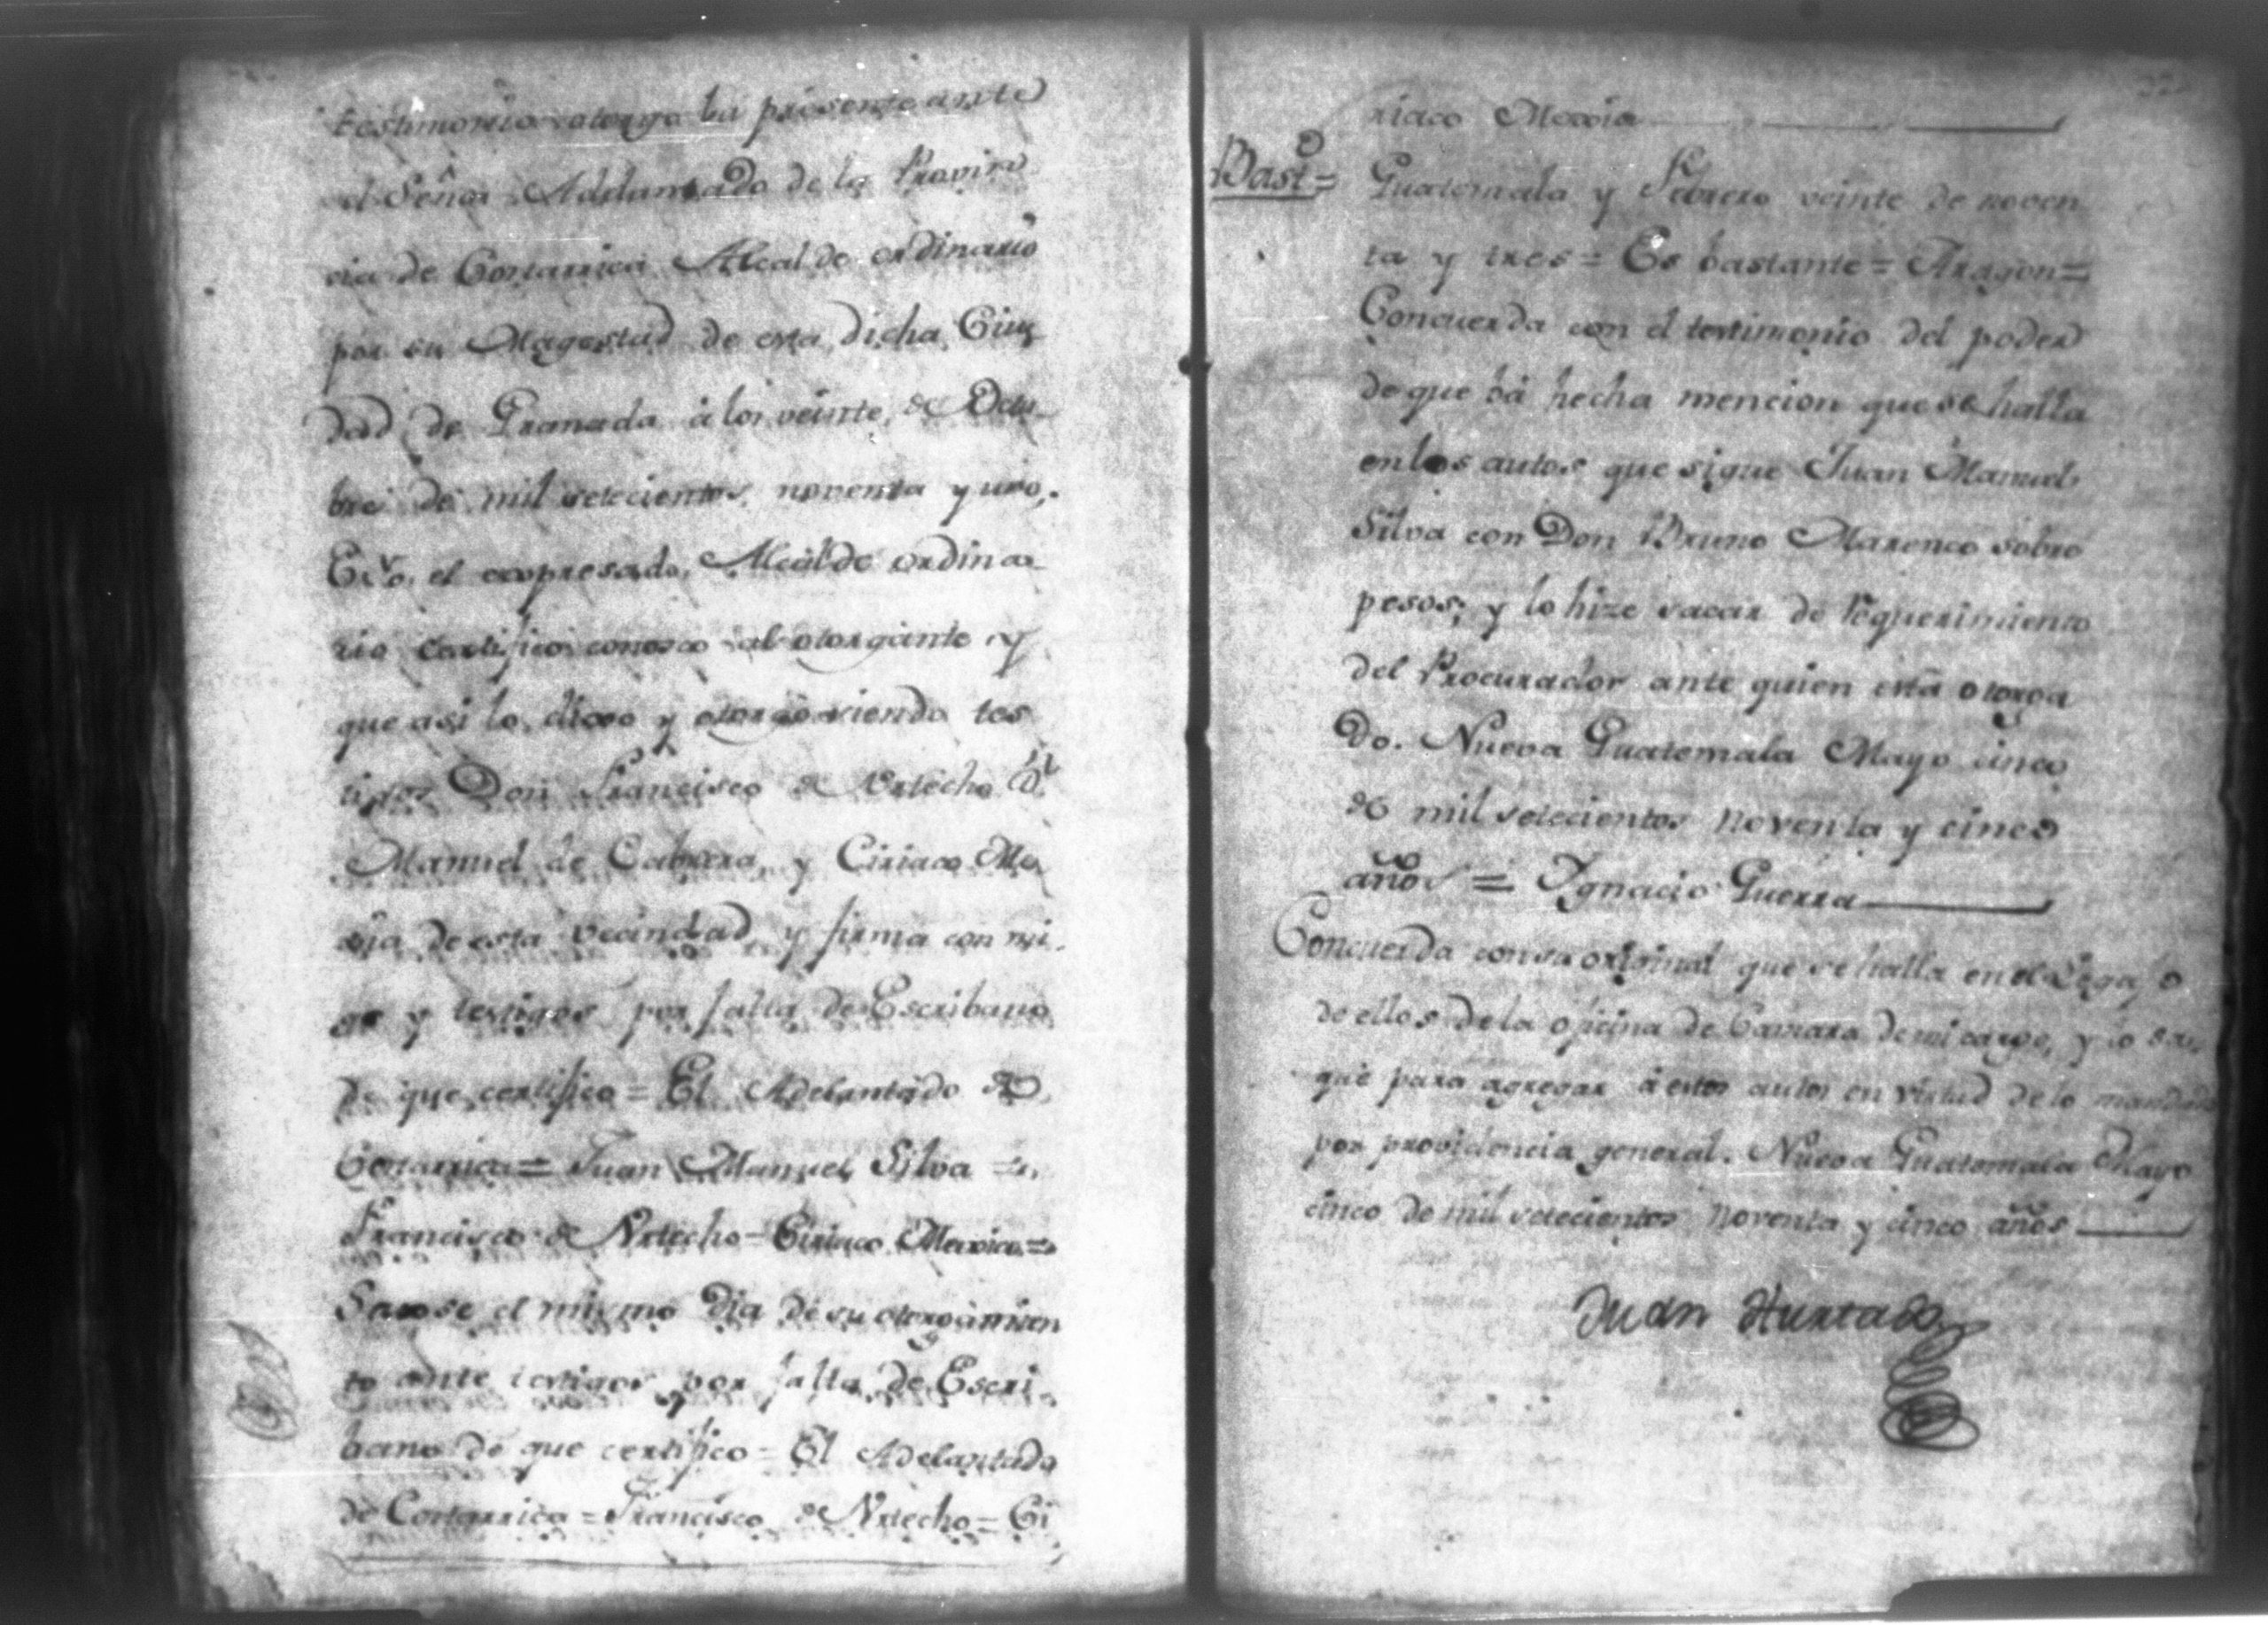 testimonio otorgo la presente ante
el Señor Adelantado de la Provin
cia de Costarrica Alcalde ordinario
por su Magestad de esta dicha Ciu
dad de Granada à los veinte de Octu
bre de mil setecientos noventa y uno,
el expresado Alcalde ordina
rio certifico conosco al otorgante y
que asi lo dixo y otorgò siendo tes
tigos Don Francisco de Vrtecho Dⁿ
Manuel de Cabrera, y Ciriaco Me
xia de esta vecindad y firma con mi
go y testigos por falta de Escribano
de que certifico = El Adelantado de
Costarrica = Juan Manuel Silva =
Francisco de Vrtecho = Ciriaco Mexia =
Sacose el mismo dia de su otorgamien
to ante testigos por falta de Escri
bano de que certifico = El Adelantado
de Costarrica = Francisco de Vrtecho = Ci
riaco Mexia
Bastᵒ= Guatemala y Febrero veinte de noven
ta y tres = Es bastante = Aragon =
Concuerda con el testimonio del poder
de que bá hecha mencion que se halla
en los autos que sigue Juan Manuel
Silva con Don Bruno Marenco sobre
pesos; y lo hize sacar de requerimiento
del Procurador ante quien està otorga
do. Nueva Guatemala Mayo cinco
de mil setecientos noventa y cinco
años = Ygnacio Guerra
Concuerda con su original que se halla en el Legajo
de ellos de la oficina de Camara de mi cargo, y lo sa
què para agregar à estos autos en virtud de lo mandado
por providencia general. Nueva Guatemala Mayo
cinco de mil setecientos noventa y cinco años
Juan Hurtado